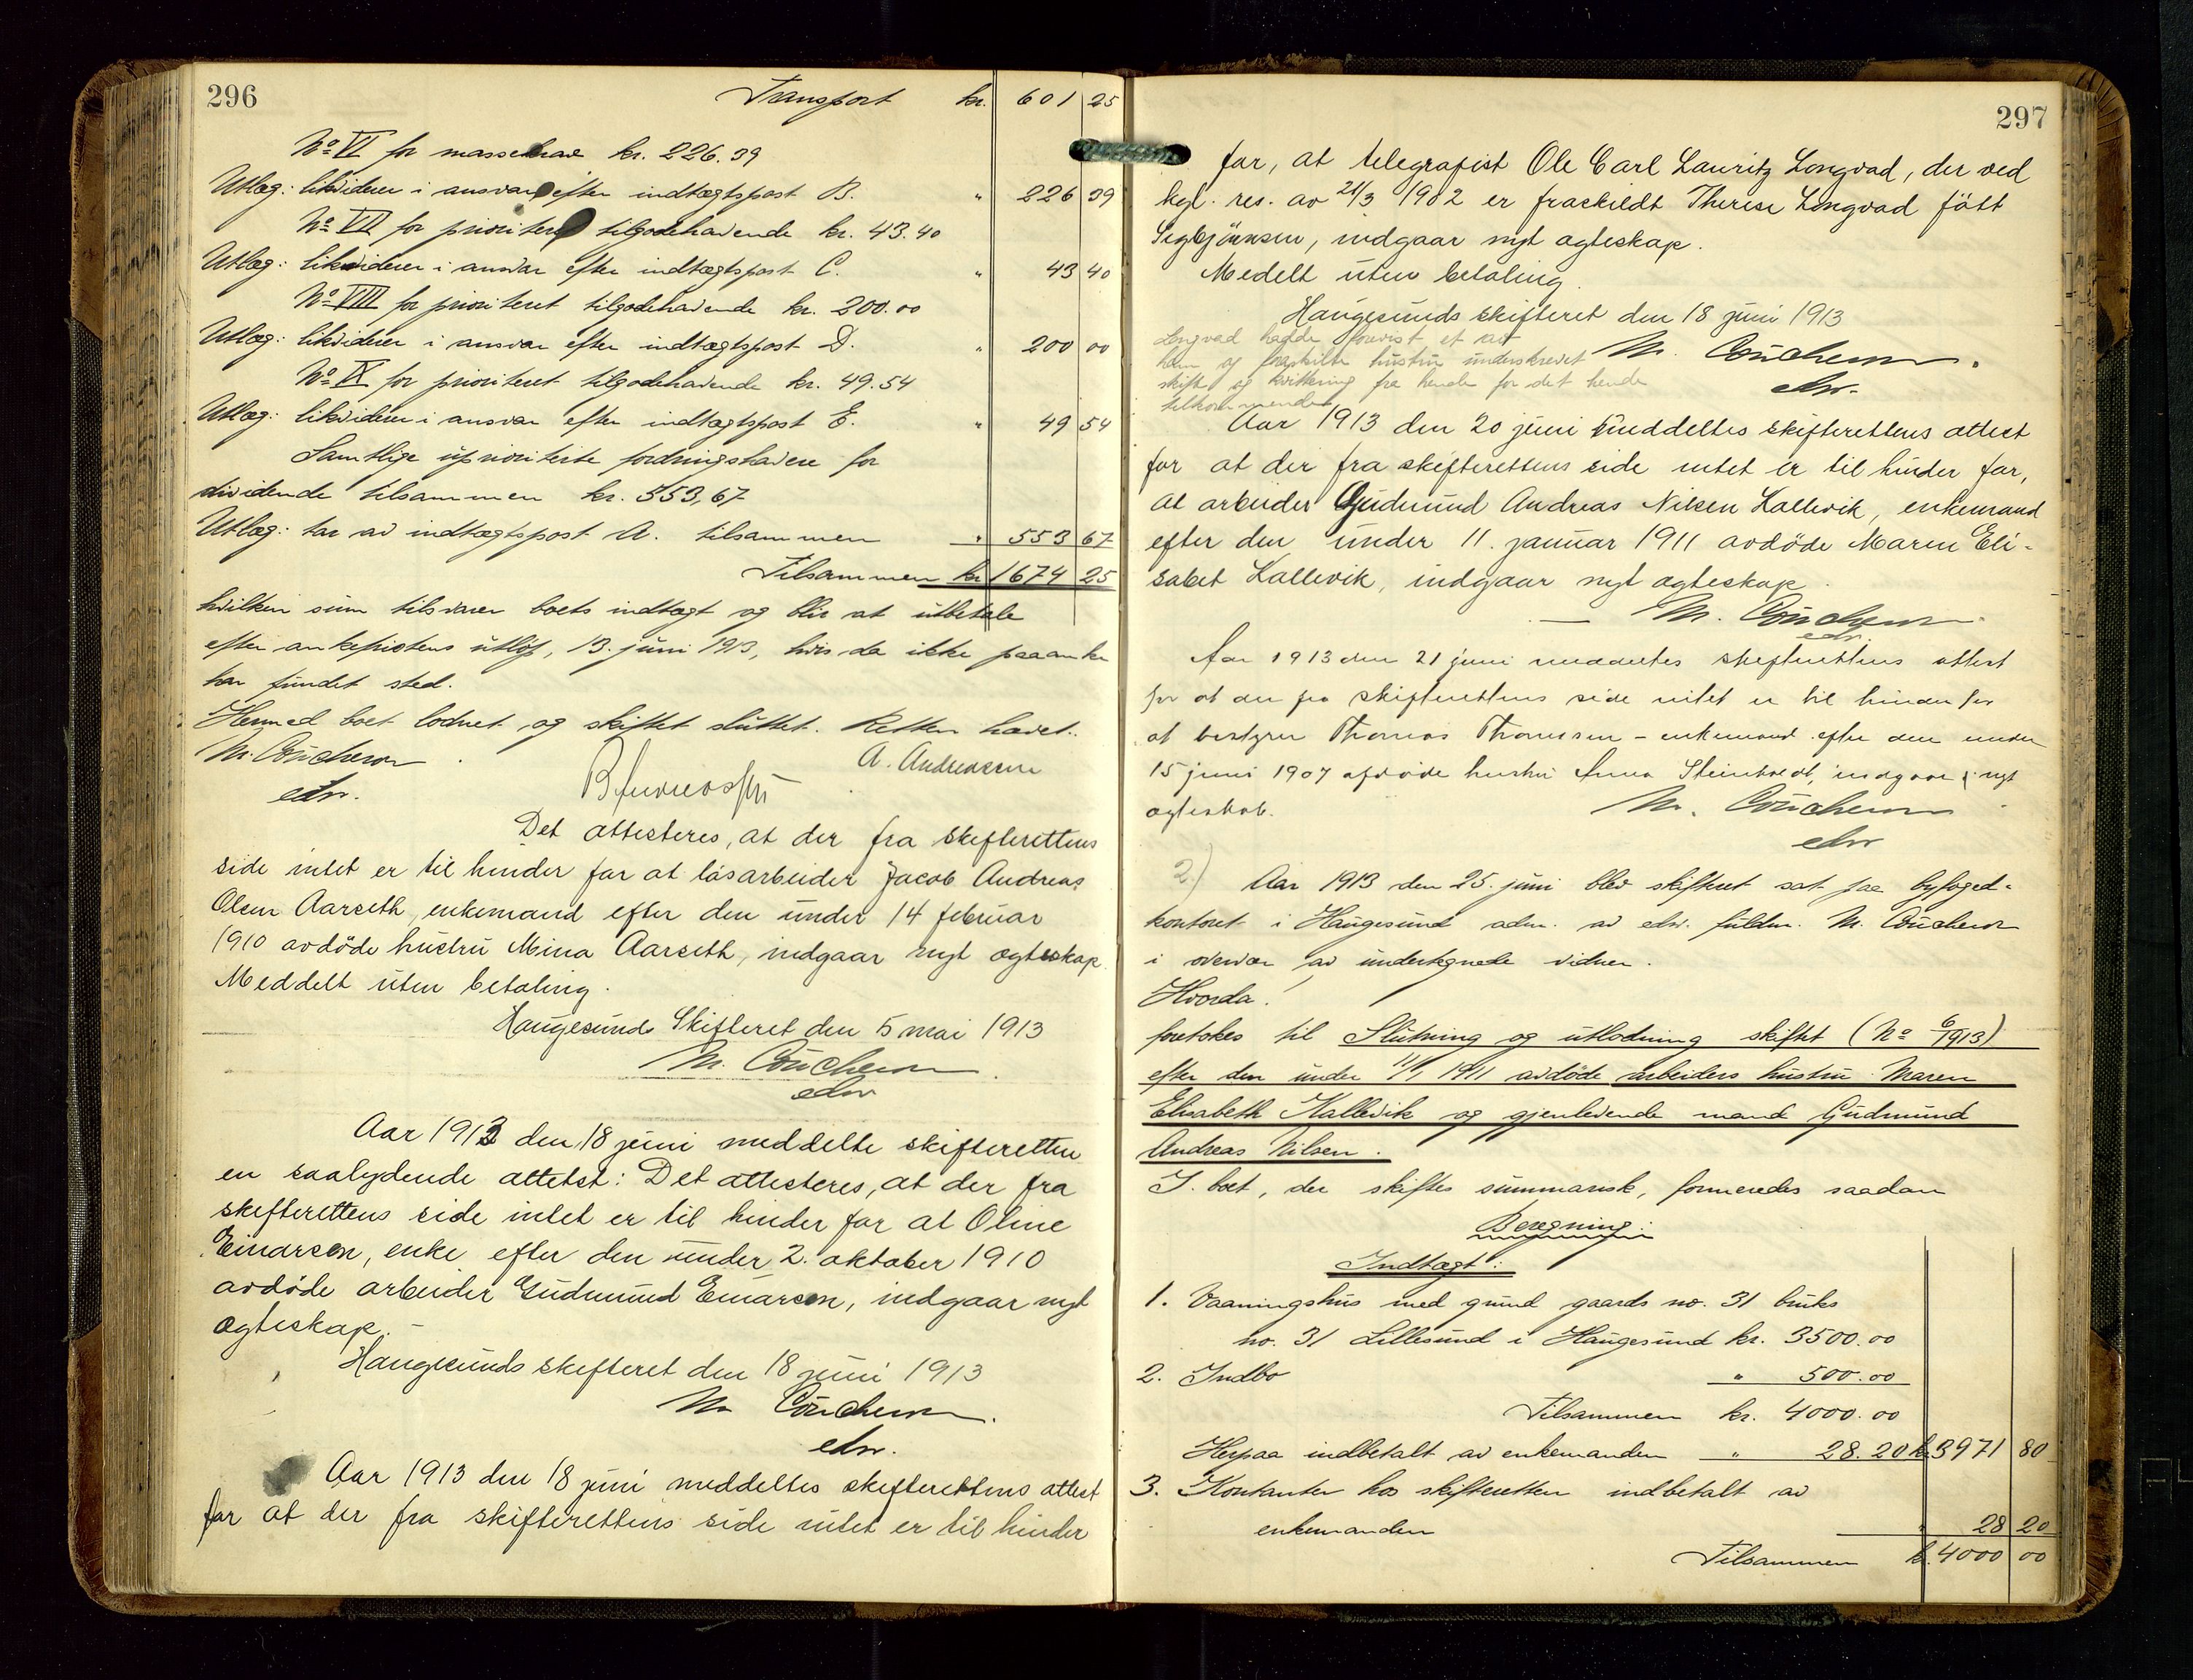 296
Transport kr. 601 25
No VI for massekrav kr. 226.39
Utlæg: likviderer i ansvar efter indtægtspost B. " 226 39
No VII for prioritert tilgodehavende kr. 43.40
Utlæg: likviderer i ansvar efter indtægtspost C. " 43 40
No VIII for prioritert tilgodehavende kr. 200.00
Utlæg: likviderer i ansvar efter indtægtspost D. " 200 00
No IX for prioritert tilgodehavende kr. 49.54
Utlæg: likviderer i ansvar efter indtægtspost E. " 49 54
Samtlige uprioriterte fordringshavere for
dividende tilsammen kr. 553,67
Utlæg: tar av indtægtspost A. tilsammen " 553 67
Tilsammen kr 1674 25
hvilken sum tilsvarer boets indtægt og blir at utbetale
efter ankefristens utløp, 13. juni 1913, hvis da ikke paaanke
har fundet sted.
Hermed boet loddet og skiftet sluttet. Retten hævet.
M. Coucheron
edsv.
A. Andreassen
Det attesteres, at der fra skifterettens
side intet er til hinder for at løsarbeider Jacob Andreas
Olsen Aarseth, enkemand efter den under 14 februar
1910 avdøde hustru Mina Aarseth, indgaar nyt ægteskap
Meddelt uten betaling.
Haugesunds Skifteret den 5 mai 1913
M. Coucheron
edsv
Aar 1913 den 18 juni meddelte skifteretten
en saalydende attetst: Det attesteres, at der fra
skifterettens side intet er til hinder for at Oline
Einarsen, enke efter den under 2. oktober 1910
avdøde arbeider Gudmund Einarsen, indgaar nyt
ægteskap.
Haugesunds skifteret den 18 juni 1913
M. Coucheron.
edsv.
Aar 1913 den 18 juni meddeltes skifterettens attest
for at der fra skifterettens side intet er til hinder
297
for, at telegrafist Ole Carl Lauritz Longvad, der ved
kgl. res. av 21/3 1902 er fraskildt Therese Longvad født
Sigbjørnsen, indgaar nyt ægteskap.
Medelt uten betaling.
Haugesunds skifteret den 18 juni 1913
Longvad hadde forevist et av
ham og fraskilte hustru underskrevet
skifte og kvittering fra hende for det hende
tilkommende
M. Coucheron.
edsv.
Aar 1913 den 20 juni meddeltes skifterettens attest
for at der fra skifterettens side intet er til hinder for,
at arbeider Gudmund Andreas Nilsen Kallevik, enkemand
efter den under 11. januar 1911 avdøde Maren Eli-
sabet Kallevik, indgaar nyt ægteskap.
M. Coucheron
edsv.
Aar 1913 den 21 juni meddeltes skifterettens attest
for at der fra skifterettens side intet er til hinder for
at bestyrer Thomas Thomsen – enkemand efter den under
15 juni 1907 afdøde hustru Anna, indgaar nyt
ægteskab.
M. Coucheron
edsv
2) Aar 1913 den 25. juni blev skifteret sat paa byfoged-
kontoret i Haugesund adm. av edsv. fuldm. M. Coucheron
i overvær av undertegnede vidner.
Hvorda:
foretokes til Slutning og utlodning skiftet (No 6/1913)
efter den under 11/1 1911 avdøde arbeiders hustru Maren
Elisabeth Kallevik og gjenlevende mand Gudmund
Andreas Nilsen.
I boet, der skiftes summarisk, formeredes saadan
Beregning:
Indtægt:
1. Vaaningshus med grund gaards no. 31 bruks
no. 31 Lillesund i Haugesund kr. 3500.00
2. Indbo " 500.00
Tilsammen kr. 4000.00
Herpaa indbetalt av enkemanden " 28.20 kr 3971 80
3. Kontanter hos skifteretten indbetalt av
enkemanden " 28 20
Tilsammen kr. 4000 00